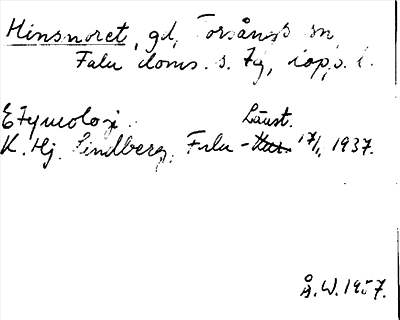 Hinsnoret, gd, Torsångs sn
Falu doms. s. Fg, i op. s. l.
Etymologi. Länst.
K. Hj. Lindberg, Falu - Kur. 17/1 1937.
Å. W. 1957.